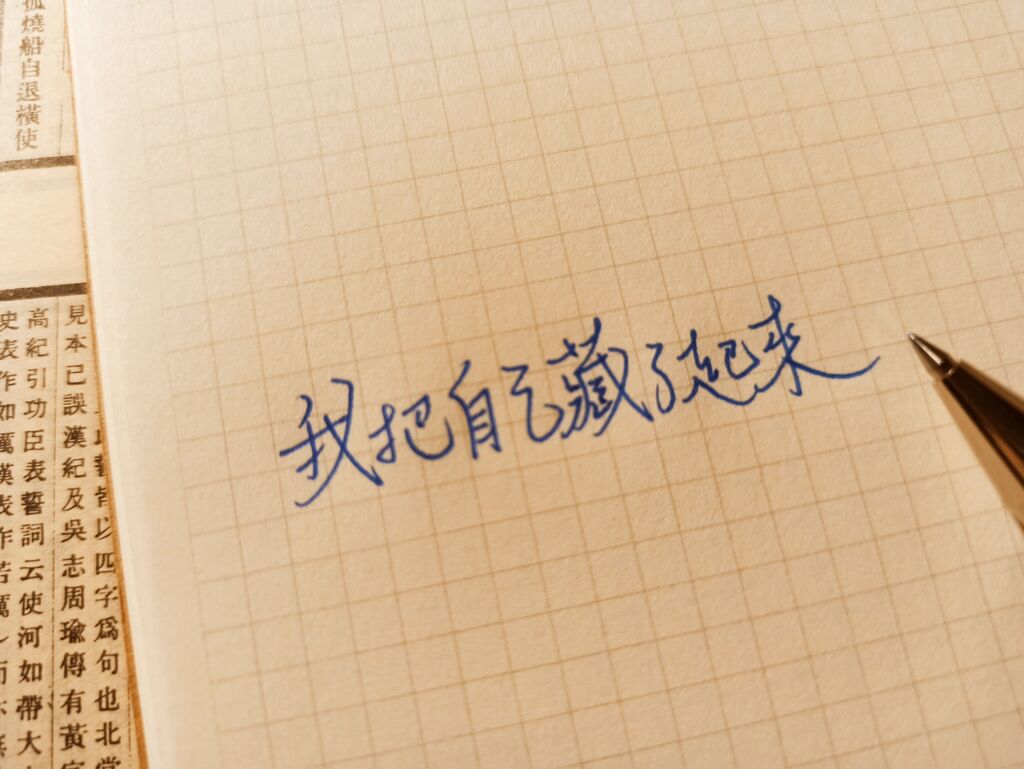 我把自己藏了起来
孤燒船自退橫使
此書皆以四字爲句也北堂
見本已誤漢紀及吳志周瑜傳有黃
高紀引功臣表誓詞云使河如帶大
史表作如厲漢表作若厲